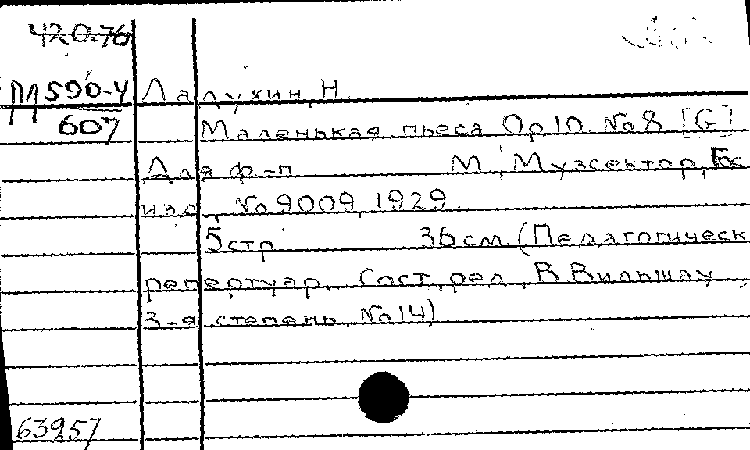 42.0.76
М590-4 Ладухин, Н.
607 Маленькая пьеса Op 10 №8 [G]
Для ф-п М., Музсектор, Гос
изд., №9009, 1929.
5 стр. 36 см. (Педагогическ
репертуар. Сост. ред. В. Вильшау,
3-я степень №14)
63957